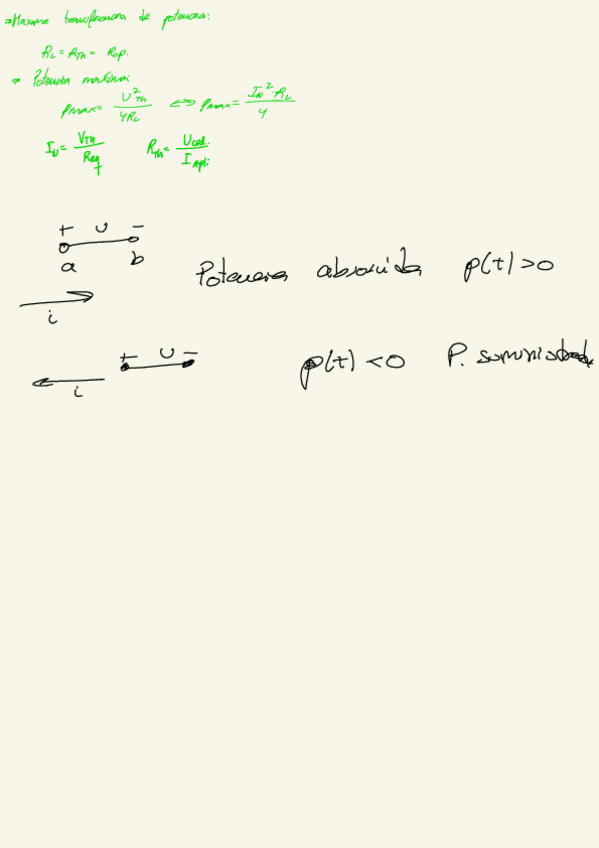 ⇒ Maxima transferencia de potencia:
RL = RTh = Rop.
⇒ Potencia maxima:
Pmax = U²Th / 4RL ⇔ Pmax = IN²·RL / 4
IN = VTH / Req RTh = Ucal. / I Apli
+ U -
a b
i
Potencia absorvida p(t) > 0
+ U -
i
p(t) < 0 P. suministrada